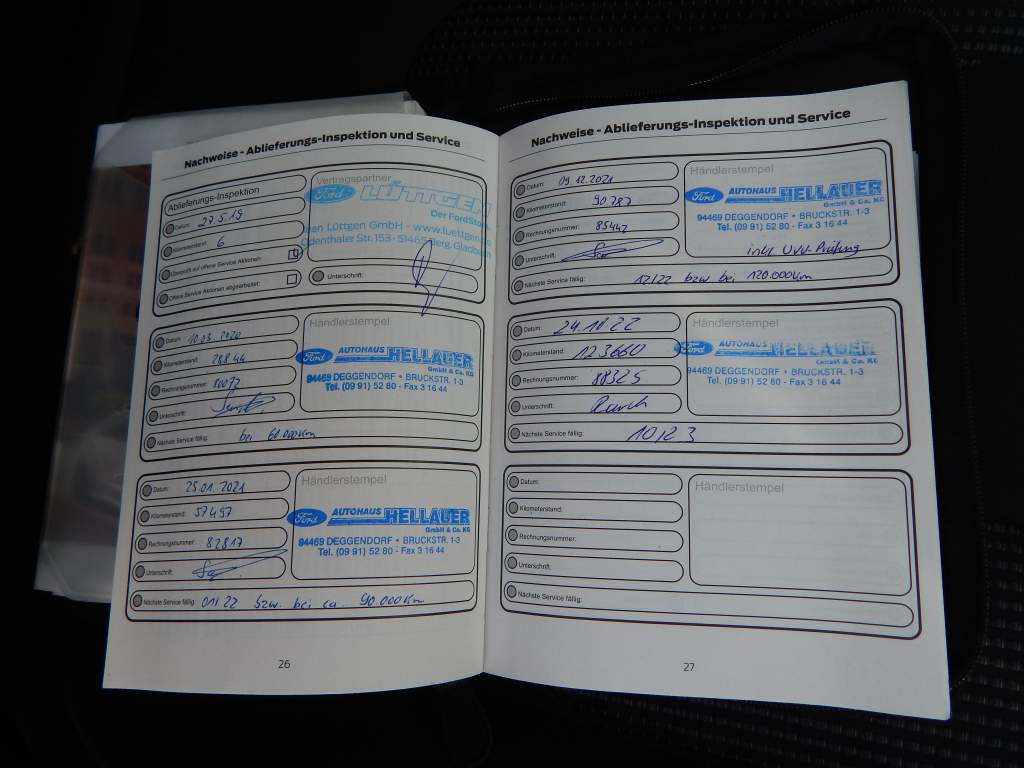 Nachweise - Ablieferungs-Inspektion und Service
Ablieferungs-Inspektion
Datum: 27.5.19
Kilometerstand: 6
Überprüft auf offene Service Aktionen:
Offene Service Aktionen abgearbeitet:
Vertragspartner
Ford LÜTTGEN
Der FordStore.
Lüttgen GmbH - www.luettgen.
Odenthaler Str. 153 - 51465 Berg. Gladbach
Unterschrift:
Datum: 10.03.2020
Kilometerstand: 28844
Rechnungsnummer: 80072
Unterschrift:
Nächste Service fällig: bei 60.000km
Händlerstempel
Ford AUTOHAUS HELLAUER
GmbH & Co. KG
94469 DEGGENDORF • BRUCKSTR. 1-3
Tel. (09 91) 52 80 - Fax 3 16 44
Datum: 25.01.2021
Kilometerstand: 57497
Rechnungsnummer: 82817
Unterschrift:
Nächste Service fällig: 01/22 bzw. bei ca. 90.000km
Händlerstempel
Ford AUTOHAUS HELLAUER
GmbH & Co. KG
94469 DEGGENDORF • BRUCKSTR. 1-3
Tel. (09 91) 52 80 - Fax 3 16 44
26
Nachweise - Ablieferungs-Inspektion und Service
Datum: 09.12.2021
Kilometerstand: 90.787
Rechnungsnummer: 85442
Unterschrift:
Nächste Service fällig: 12/22 bzw bei 120.000km
Händlerstempel
Ford AUTOHAUS HELLAUER
GmbH & Co. KG
94469 DEGGENDORF • BRUCKSTR. 1-3
Tel. (09 91) 52 80 - Fax 3 16 44
inkl. UVV-Prüfung
Datum: 24.10.22
Kilometerstand: 123660
Rechnungsnummer: 88325
Unterschrift:
Nächste Service fällig: 10/23
Händlerstempel
Ford AUTOHAUS HELLAUER
GmbH & Co. KG
94469 DEGGENDORF • BRUCKSTR. 1-3
Tel. (09 91) 52 80 - Fax 3 16 44
Datum:
Kilometerstand:
Rechnungsnummer:
Unterschrift:
Nächste Service fällig:
Händlerstempel
27